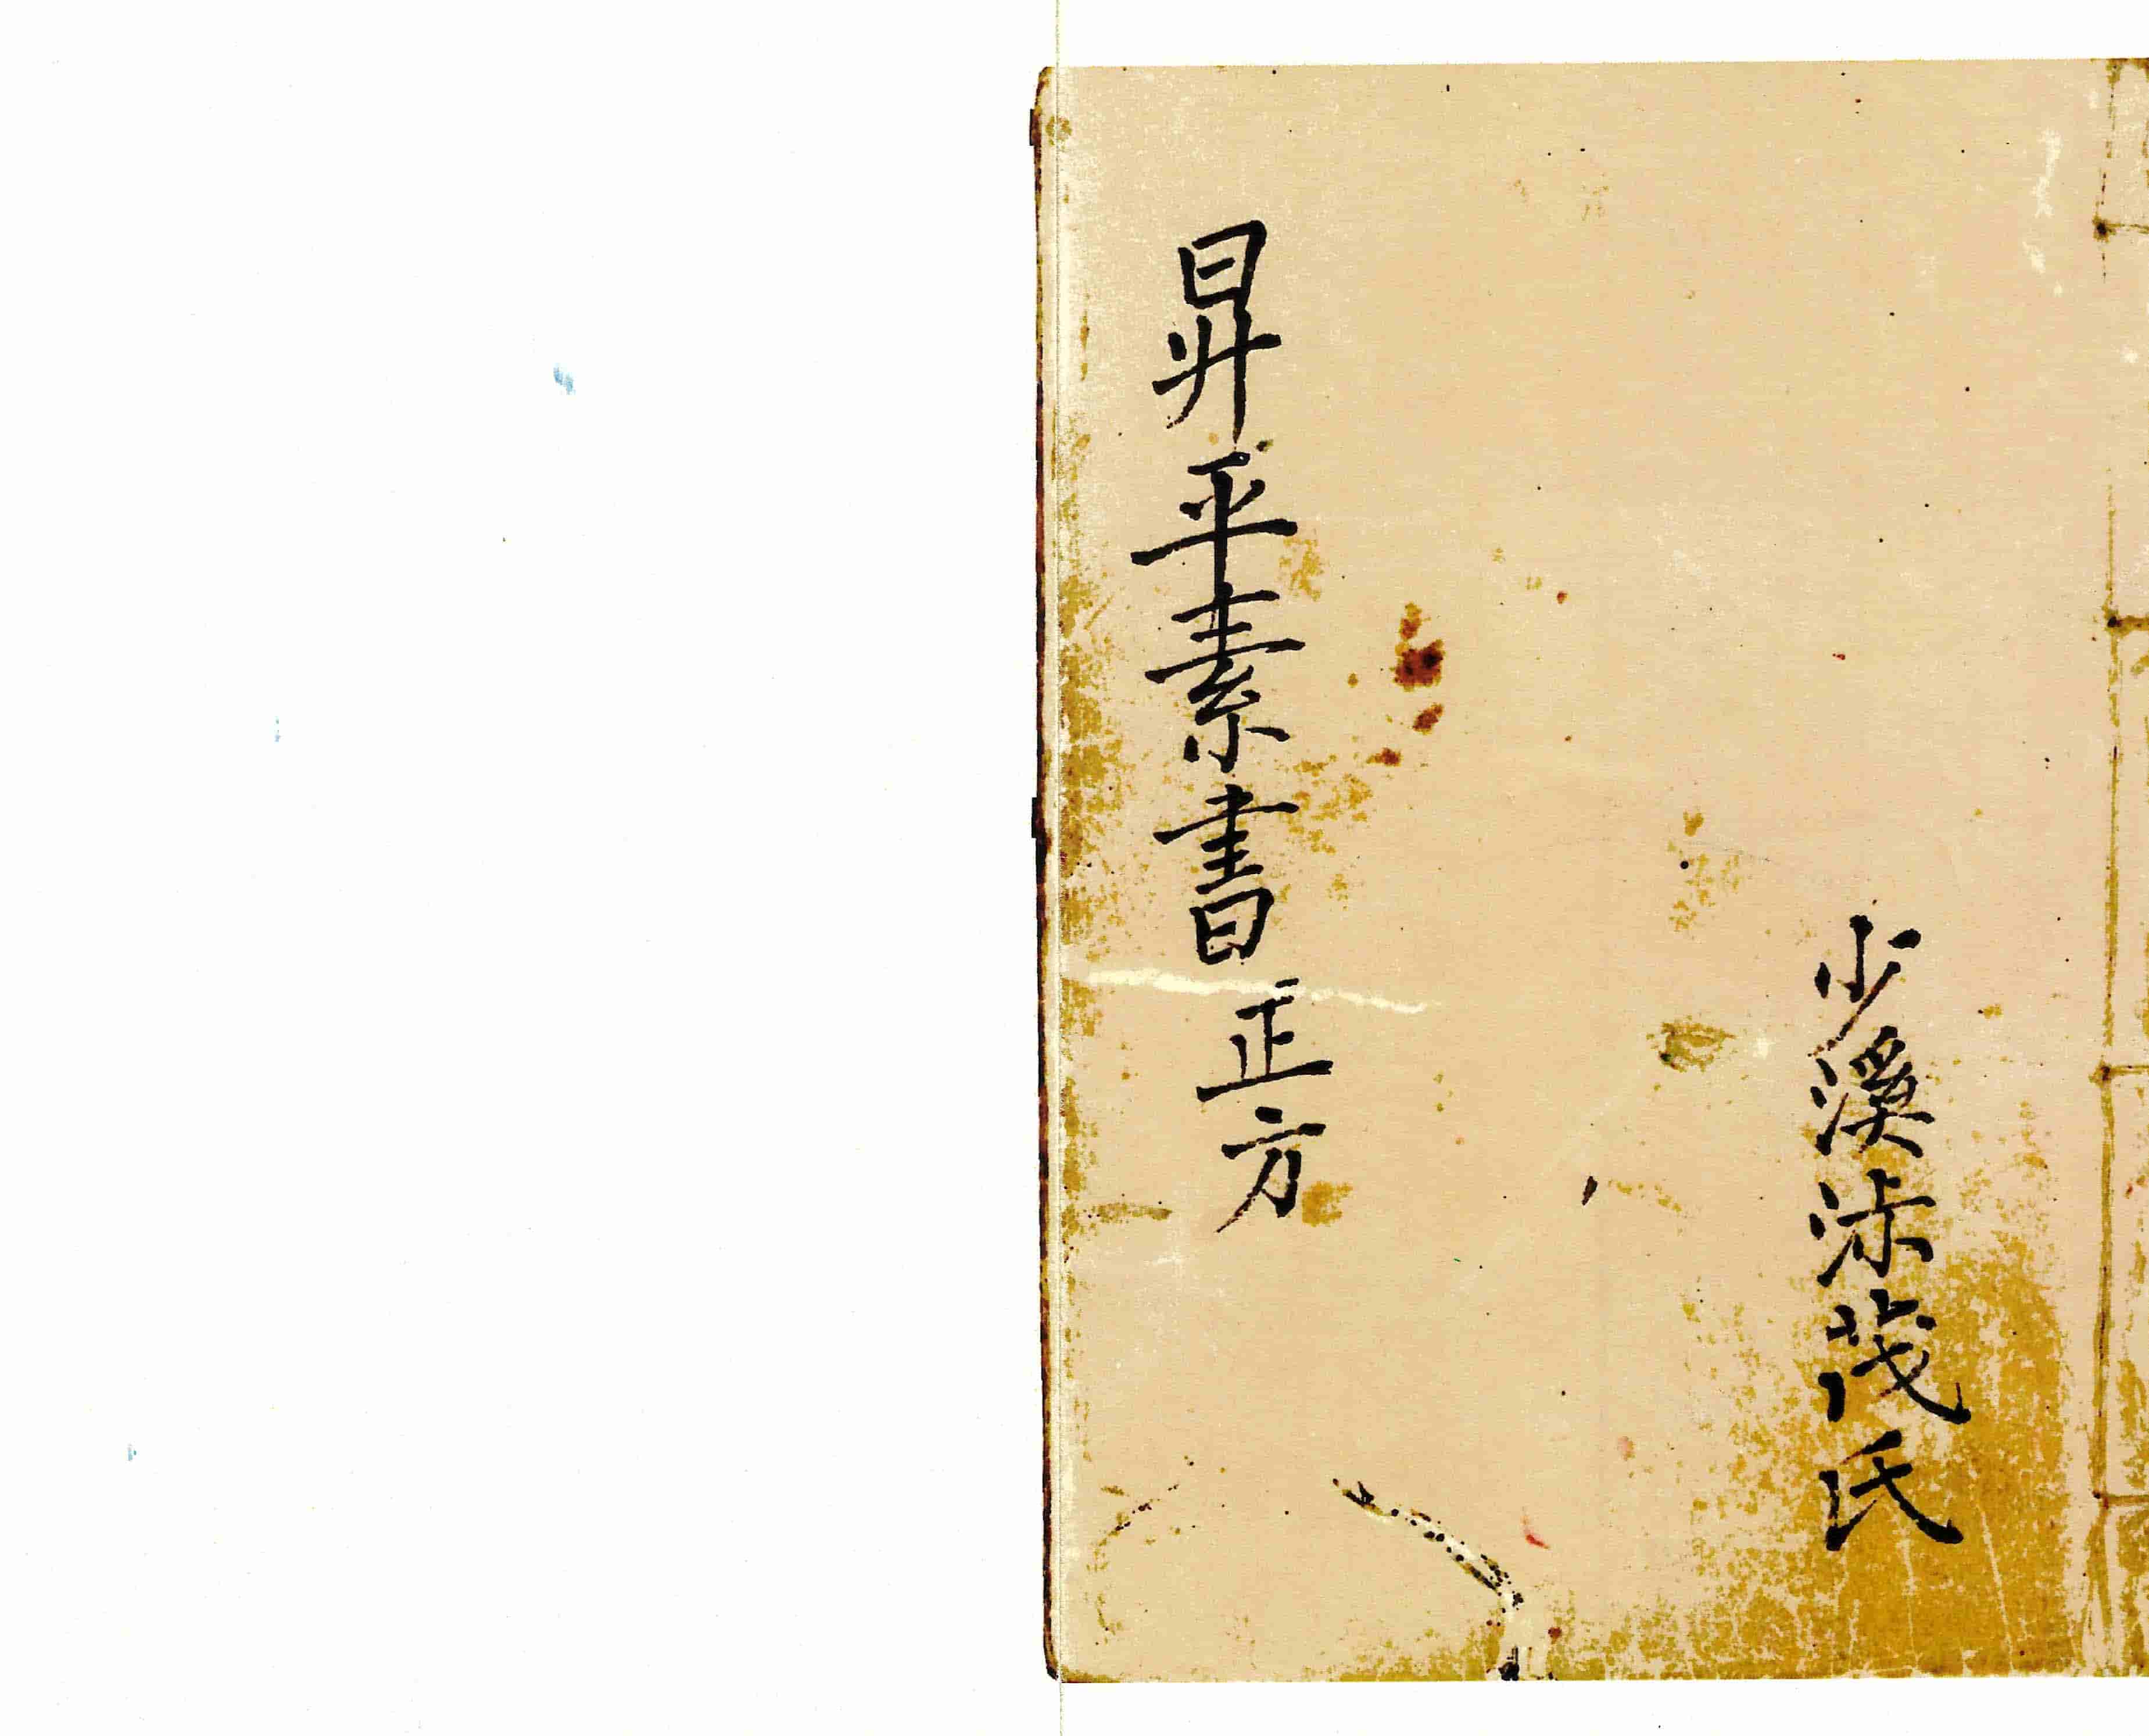 少溪茂氏
昇平素書正方